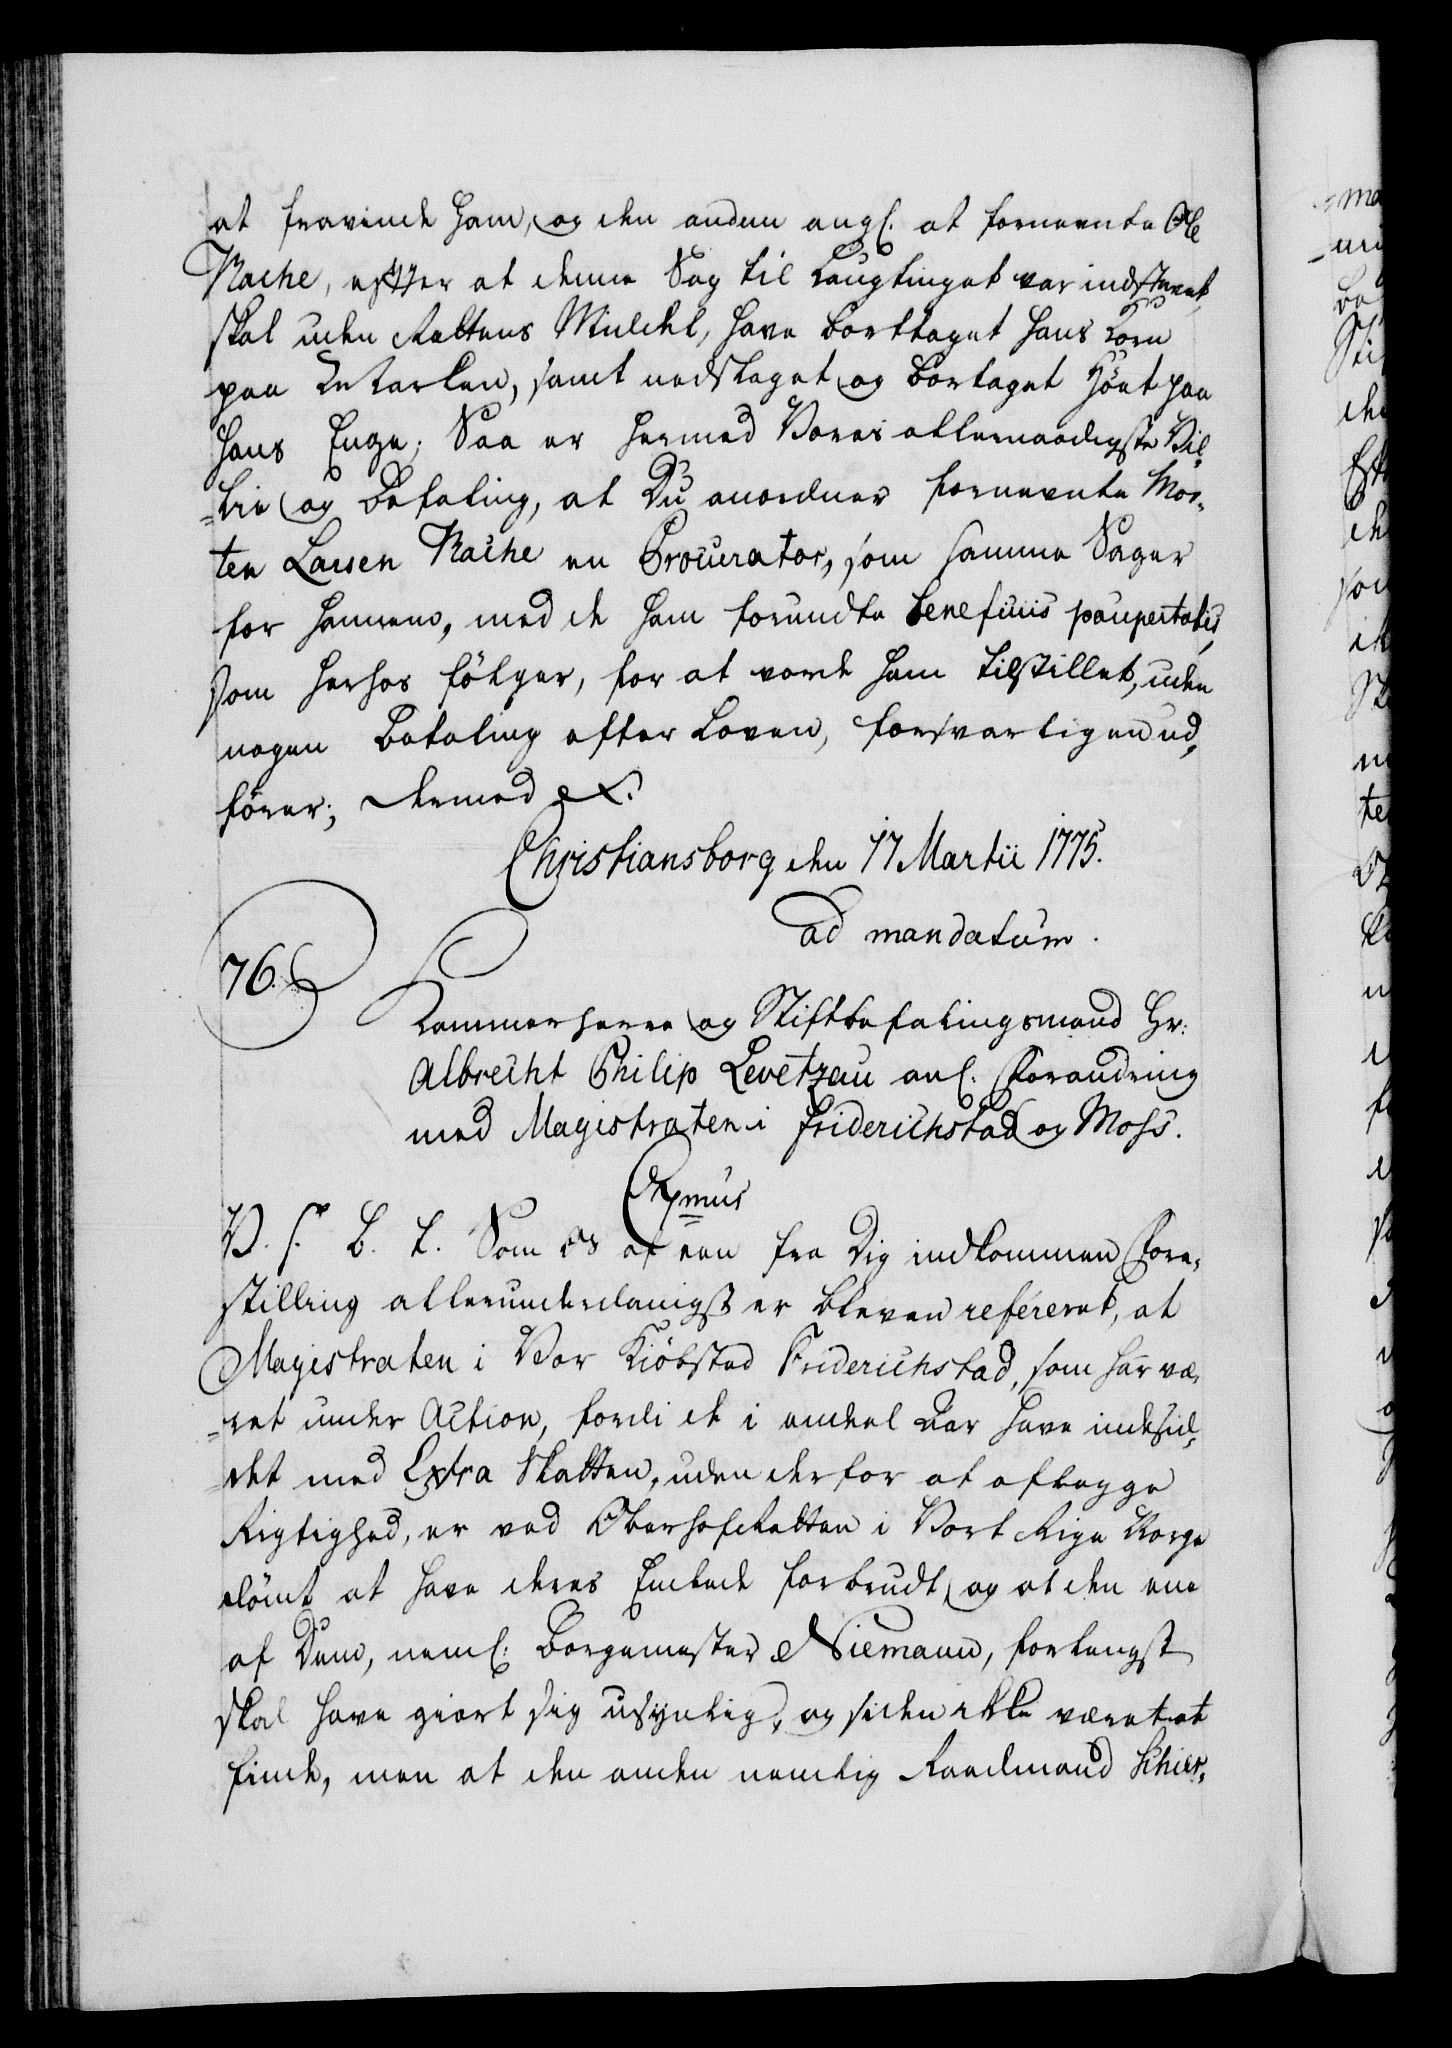 at fravinde ham, og den anden angl. at fornevnte Ole
Rache, efter at denne Sag til Laugtinget var indstevnt,
skal uden Rettens Middel, have borttaget hans Korn
paa Ageren, samt nedslaget og bortaget Höet paa
hans Enge; Saa er hermed Vores allernaadigste Vil¬
lie og Befaling, at Du anordner fornevnte Mor¬
ten Larsen Rache en Procurator, som samme Sager
for hannem, med de ham forundte beneficiis paupertatis,
som herhos fölger, for at vorde ham tilstillet, uden
nogen Betaling efter Loven, forsvarligen ud¬
förer; dermed etc.
Christiansborg den 17 Martii 1775.
ad mandatum.
76.
Kammerherre og Stiftbefalingsmand Hr:
Albrecht Philip Levetzau anl. Forandring
med Magistraten i Friderichstad og Moss.
V. s. G. t. Som Os af een fra Dig indkommen Fore¬
stilling allerunderdanigst er bleven refereret, at
Magistraten i Vor Kiöbstad Friderichstad, som har væ¬
ret under Action, fordi de i endeel Aar have indesid¬
det med Extra Skatten, uden derfor at aflegge
Rigtighed, er ved Oberhofretten i Vort Rige Norge
dömt at have deres Embede forbrudt, og at den ene
af Dem, neml: Borgemester Niemann, forlengst
skal have giort sig usynlig, og siden ikke været at
finde, men at den anden nemlig Raadmand Schier¬